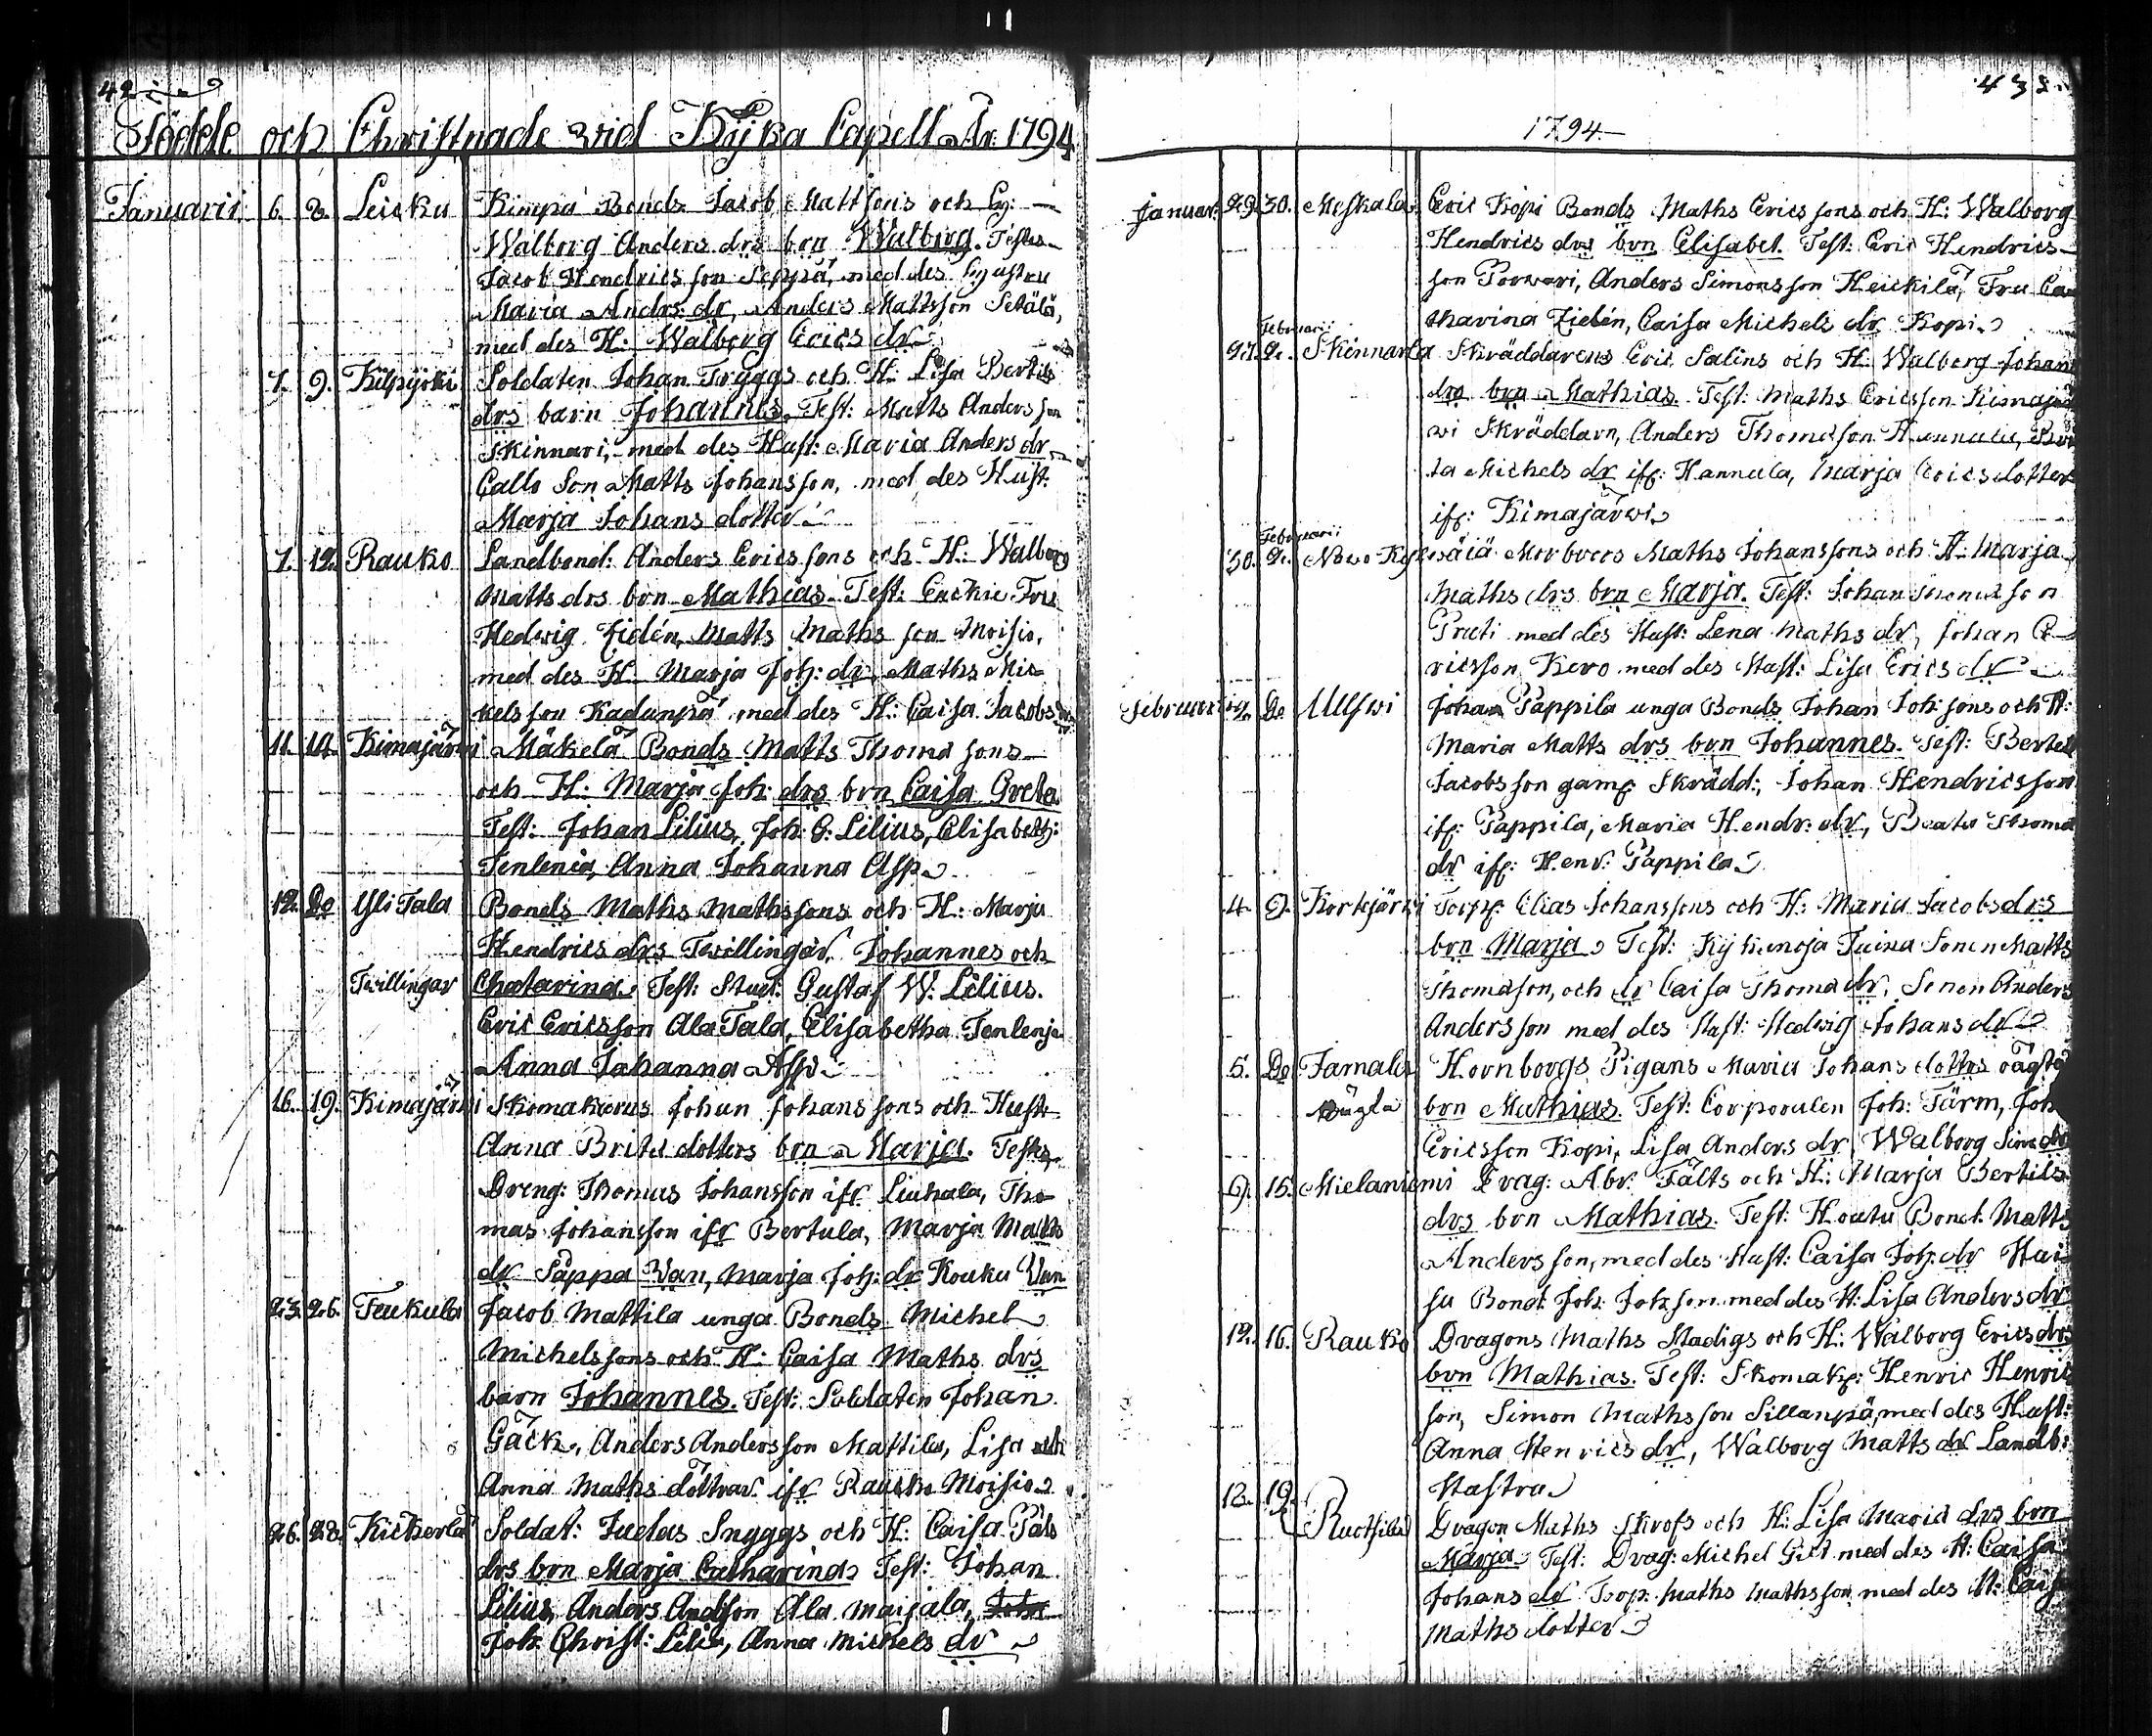 42
Födde och Christnade wid Kyka Capell År 1794
Januarii 6. 8. Leicku Kimpä Bonds Jacob Mattsons och Hu:
Walborg Anders drs brn Walborg. Testes
Jacob Hendricsson Seppä, med des Hustru
Maria Andrs: dr, Anders Mattsson Setälä,
med des H: Walborg Erics dr
7. 9. Kilpijoki Soldaten Johan Tryggs och H: Lisa Bertils
drs barn Johannes. Test: Matts Andersson
Skinnari, med des Hust: Maria Anders dr
Callo Son Matts Johansson, med des Hust:
Marja Johans dotter
7. 12. Rauko Landbond: Anders Ericssons och H: Walborg
Matts drs brn Mathias. Test: Enckie Fru
Hedwig Zidén, Matts Mathsson Moisio,
med des H: Marja Joh: dr, Maths Mic-
kelsson Kadunpä med des H: Caisa Jacobs dr
11. 14. Kimajärwi Mäkelä Bonds Matts Thomasons
och H: Marja Joh: drs brn Caisa Greta
Test: Johan Lilius, Joh: G: Lilius, Elisabeth:
Tenlenia, Anna Johanna Asp
12. Do Yli Tala Bonds Maths Mathssons och H: Marja
Hendrics drs Twillingar Johannes och
Twillingar Chatarina. Test: Stud: Gustaf W: Lilius.
Eric Ericsson Ala Tala, Elisabetha Tenlenja
Anna Johanna Asp
16. 19. Kimajärwi Skomakerus Johan Johanssons och Hustr
Anna Brita dotters brn Marja. Testes
Dreng: Thomas Johansson ifr Liuhala, Tho-
mas Johansson ifr Bertula, Marja Matts
dr Säppä Wan, Marja Joh: dr Kouku Wan
23. 26. Teukula Jacob Mattila unga Bonds Michel
Michelssons och H: Caisa Maths drs
barn Johannes. Test: Soldaten Johan
Gäck, Anders Andersson Mattila, Lisa och
Anna Maths döttrar ifr Rauko Moisio
26. 28. Kickerlä Soldat: Judas Snyggs och H: Caisa Påls
drs brn Marja Catharina Test: Johan
Lilius, Anders Andsson Ala Maijala,
Joh: Christ: Lilia, Anna Michels dr
43
1794
Januar: 29. 30. Meskala Eric Kopi Bonds Maths Ericssons och H: Walborg
Hendrics drs brn Elisabet. Test: Eric Hendrics-
son Porwari, Anders Simonsson Heickilä, Fru Ca
tharina Zidén, Caisa Michels dr Kopi
Februarii
27. 2. Skinnarla Skräddarens Eric Salins och H: Walborg Johans
drs brn Mathias. Test: Maths Ericsson Kimajär
wi Skräddarn, Anders Thomason Hannula, Bri
ta Michels dr ifr: Hannula, Marja Ericsdotter
ifr: Kimajärwi
Februarii
30. 2. Nowo Kyr Maths Johanssons och H: Marja
Maths drs brn Marja. Test: Johan Thomason
Prati med des Hust: Lena Maths dr, Johan E-
ricsson Kero med des Hust: Lisa Erics dr
Februari 2. Do Ullswi Johan Pappila unga Bonds Johan Johsons och H:
Maria Matts drs brn Johannes. Test: Bertel
Jacobsson gamf: Skrädd:, Johan Hendricsson
ifr: Pappila, Maria Hendr: dr, Beata Thoma
dr ifr: Henr: Pappila
4. 9. Korkjärwi Torp: Elias Johanssons och H: Maria Jacobs drs
brn Marja. Test: Kykenoja Tuina Sonen Matts
Thomason, och dr Caisa Thoma dr, Sonen Anders
Andersson med des Hust: Hedwig Johans dr
5. Do Tamala Hornborgs Pigans Maria Johans dotters oägta
oägta brn Mathias. Test: Corporalen Joh: Tärm, Joh
Ericsson Kopi, Lisa Anders dr, Walborg Sims dr
9. 15. Mielaniemi Drag: Abr: Fälts och H: Marja Bertils
drs brn Mathias. Test: Houtu Bond: Matts
Andersson, med des Hust: Caisa Joh: dr Hai-
su Bond: Joh: Johson med des H: Lisa Anders dr
12. 16. Rauko Dragons Maths Stadigs och H: Walborg Erics drs
brn Mathias. Test: Skomak: Henric Henrics
son, Simon Mathsson Sillanpä, med des Hust:
Anna Henrics dr, Walborg Matts dr Landb:
Hustru
13. 19. Ructsila Dragon Maths Skrofs och H: Lisa Maria drs brn
Marja. Test: Drag: Michel Gitt med des H: Caisa
Johans dr Torp: Maths Mathsson med des H: Caisa
Maths dotter